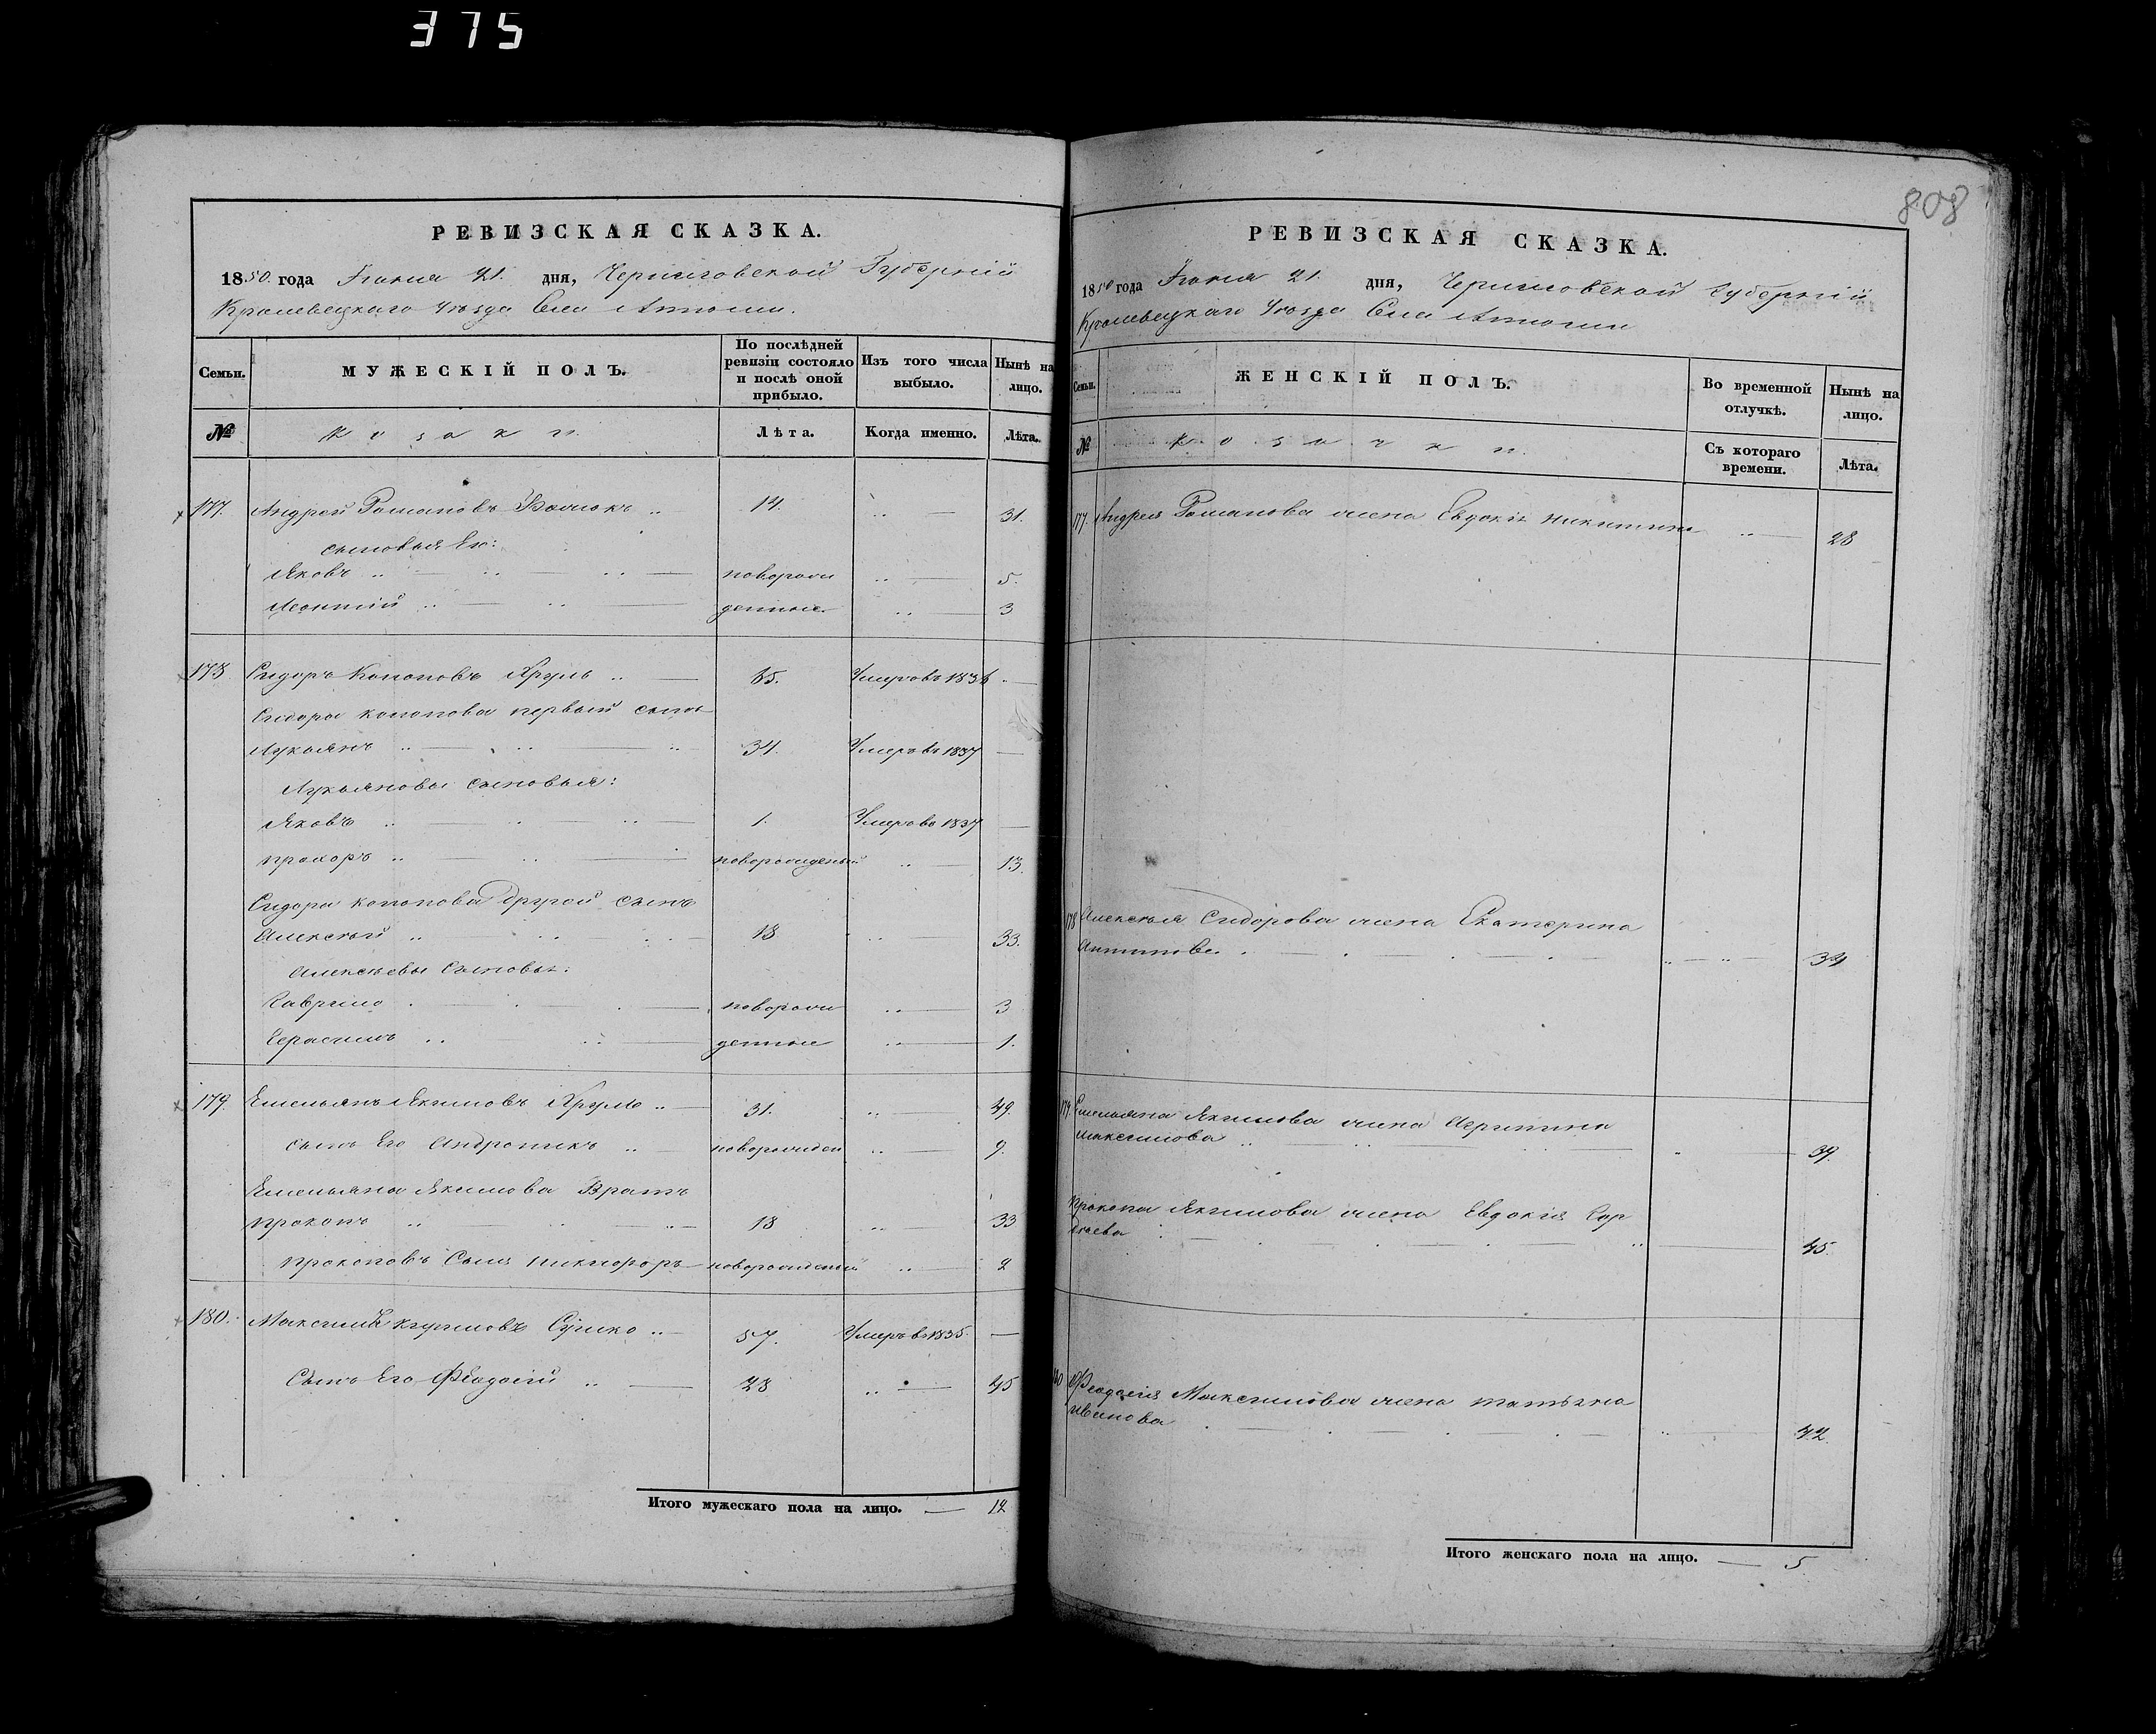 375
808
РЕВИЗСКАЯ СКАЗКА.
1850. года Іюня 21. дня, Черниговской Губерніи
Кролевецкаго Уѣзда Села
Семьи. МУЖЕСКІЙ ПОЛЪ. По послѣдней ревизіи состояло и послѣ оной прибыло. Изъ того числа выбыло. Нынѣ на лицо.
№ Козаки. Лѣта. Когда именно. Лѣта.
177. Андрей Романовъ 14. 31.
сыновья Его:
Яковъ новорож 5.
Леонтій денные 3
178 Сидоръ Кононовъ 65. Умеръ въ 1836
Сидора Кононова первый сынъ
Лукьянъ 34. Умеръ въ 1837
Лукьяновы сыновья:
Яковъ 1. Умеръ въ 1837
Прохоръ новорожденный 13.
Сидора Кононова другой сынъ
Алексѣй 18 33.
Алексѣевы сыновья:
Гаврило новорож 3
Герасимъ денные 1.
179. Емельянъ Якимовъ 31. 49.
сынъ Его Андроникъ новорожден 9.
Емельяна Якимова Братъ
Прокопъ 18 33
Прокоповъ Сынъ Никифоръ новорожденный 2
180. Максимъ Сушко 57. Умеръ въ 1835.
Сынъ Его Феодосій 28 45
Итого мужескаго пола на лицо. 12
РЕВИЗСКАЯ СКАЗКА.
1850 года Іюня 21. дня, Черниговской Губерніи
Кролевецкаго Уѣзда Села
Семьи. ЖЕНСКІЙ ПОЛЪ. Во временной отлучкѣ. Нынѣ на лицо.
№ Козачки. Съ котораго времени. Лѣта.
177. Андрея Романова жена Евдокія Никитина 28
178 Алексѣя Сидорова жена Екатерина
Антипова 34
179. Емельяна Якимова жена Агрипина
Максимова 39.
Прокопа Якимова жена Евдокія Гор
дѣева 45.
180 Феодосія Максимова жена Татьяна
Иванова 42.
Итого женскаго пола на лицо. 5